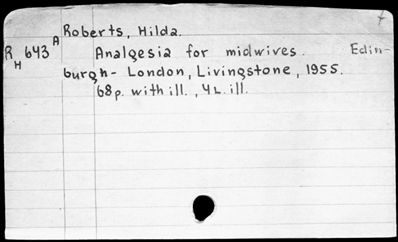 Roberts, Hilda.
R 643 A
H
Analgesia for midwives. Edin-
burgh - London, Livingstone, 1955.
68p. with ill., 4 L. ill.